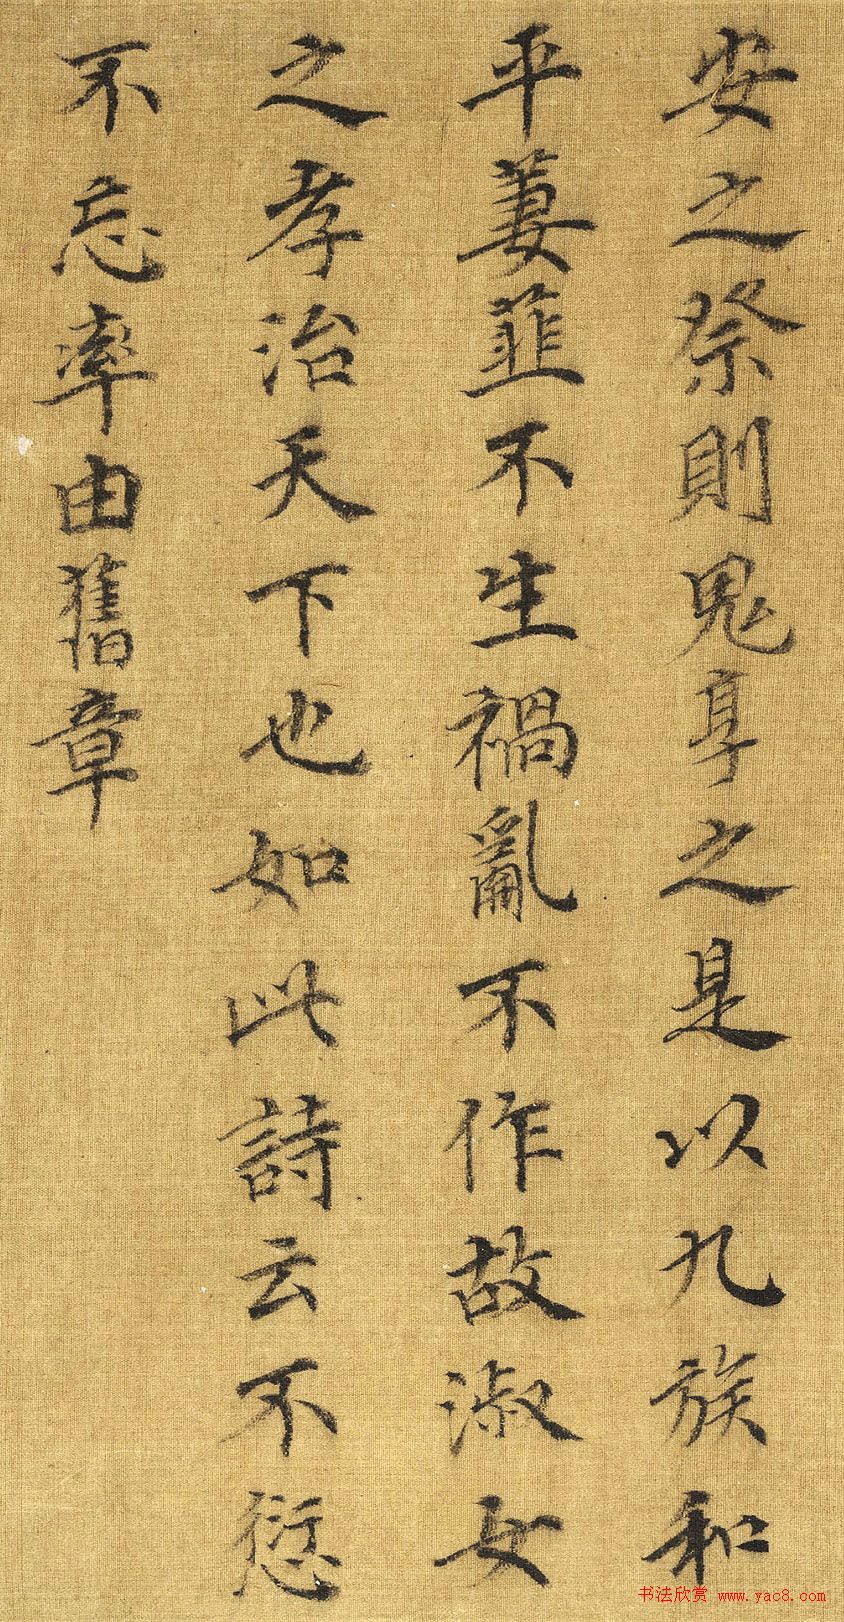 安之祭則鬼享之是以九族和
平萋菲不生禍亂不作故淑女
之孝治天下也如此詩云不愆
不忘率由舊章
书法欣赏 www.yac8.com